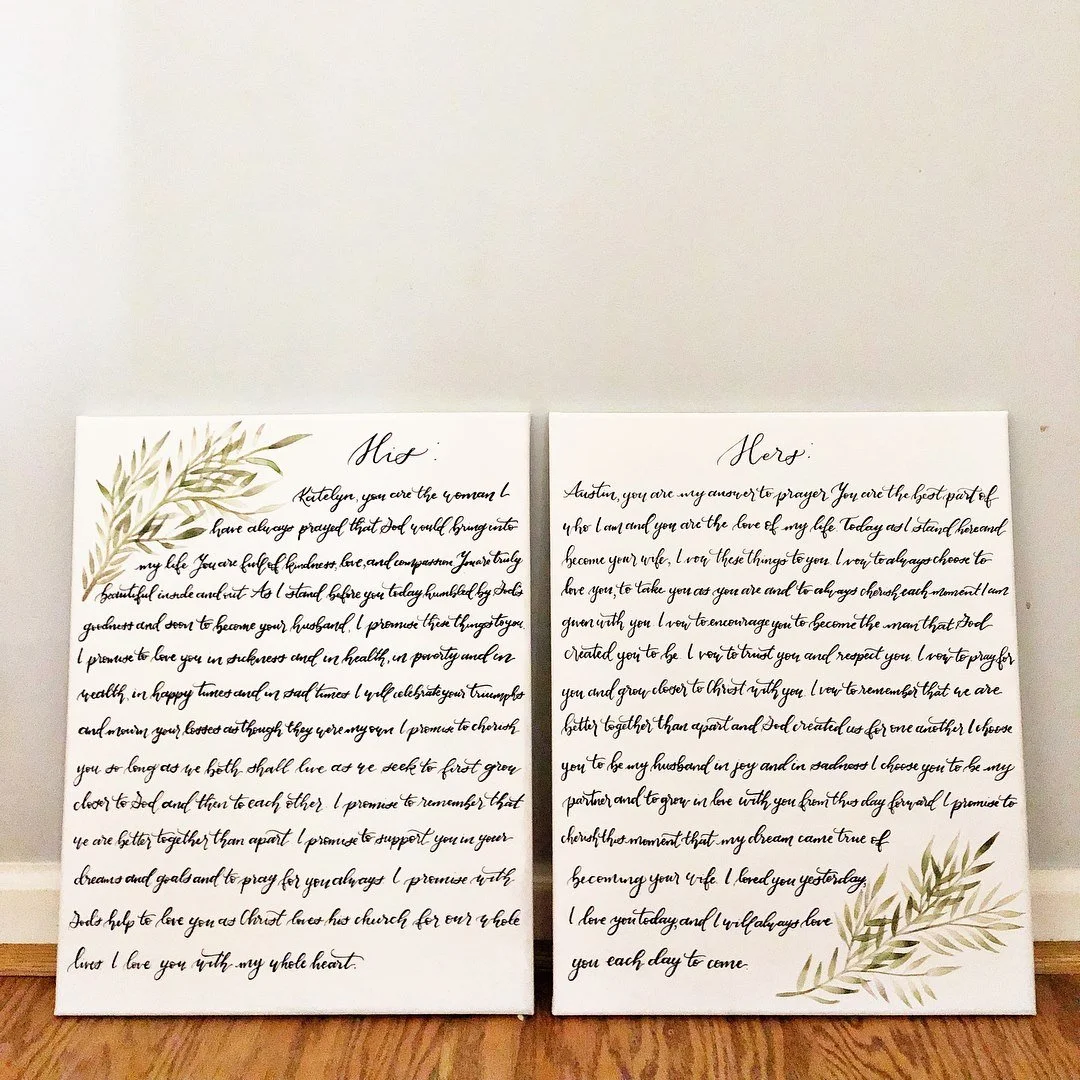 His:
Katelyn, you are the woman I
have always prayed that God would bring into
my life. You are full of kindness, love, and compassion. You are truly
beautiful inside and out. As I stand before you today, humbled by God's
goodness and soon to become your husband, I promise these things to you.
I promise to love you in sickness and in health, in poverty and in
wealth, in happy times and in sad times. I will celebrate your triumphs
and mourn your losses as though they were my own. I promise to cherish
you so long as we both shall live as we seek to first grow
closer to God and then to each other. I promise to remember that
we are better together than apart. I promise to support you in your
dreams and goals and to pray for you always. I promise with
God's help to love you as Christ loves his church for our whole
lives. I love you with my whole heart.
Hers:
Austin, you are my answer to prayer. You are the best part of
who I am and you are the love of my life. Today as I stand here and
become your wife, I vow these things to you. I vow to always choose to
love you, to take you as you are and to always cherish each moment I am
given with you. I vow to encourage you to become the man that God
created you to be. I vow to trust you and respect you. I vow to pray for
you and grow closer to Christ with you. I vow to remember that we are
better together than apart and God created us for one another. I choose
you to be my husband in joy and in sadness. I choose you to be my
partner and to grow in love with you from this day forward. I promise to
cherish this moment that my dream came true of
becoming your wife. I loved you yesterday,
I love you today, and I will always love
you each day to come.